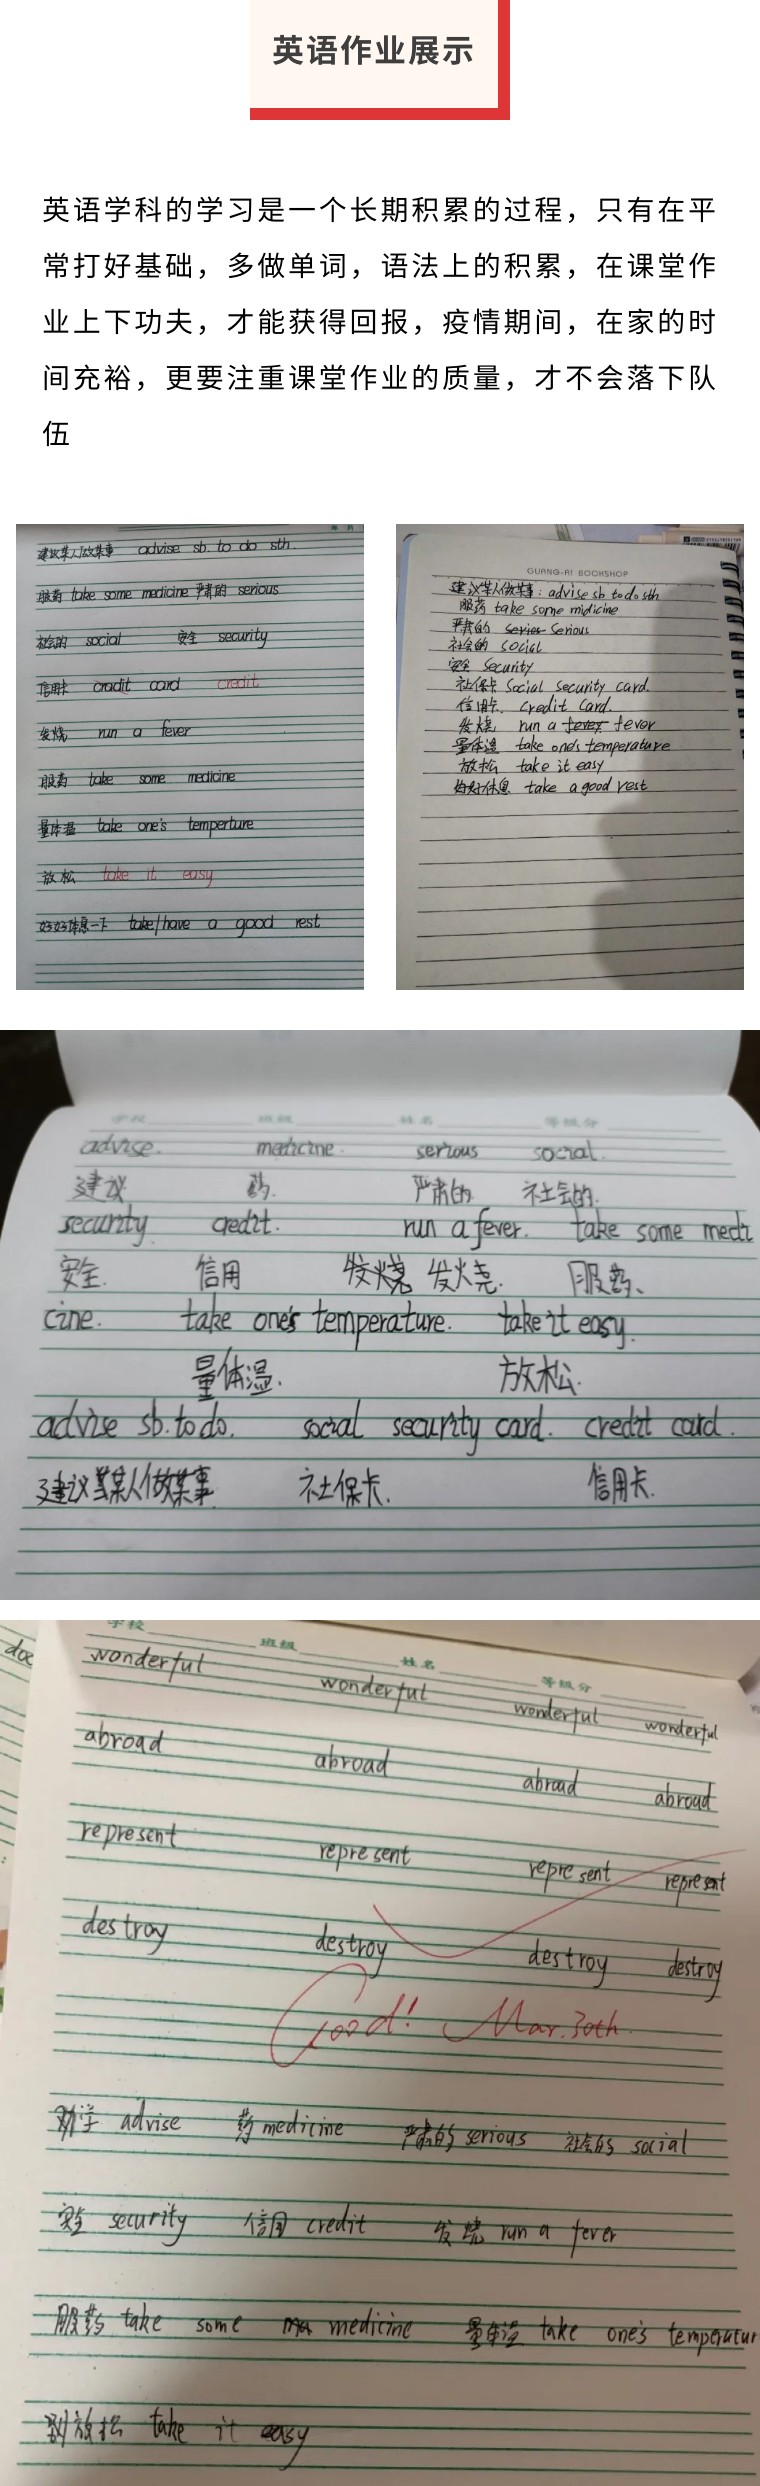 英语作业展示
英语学科的学习是一个长期积累的过程，只有在平
常打好基础，多做单词，语法上的积累，在课堂作
业上下功夫，才能获得回报，疫情期间，在家的时
间充裕，更要注重课堂作业的质量，才不会落下队
伍
建议某人做某事 advise sb. to do sth.
服药 take some medicine 严肃的 serious
社会的 social 安全 security
信用卡 cradit card credit
发烧 run a fever
服药 take some medicine
量体温 take one's temperture
放松 take it easy
好好休息一下 take/have a good rest
GUANG-AI BOOKSHOP
建议某人做某事: advise sb to do sth
服药 take some midicine
严肃的 serious
社会的 social
安全 Security
社保卡 Social Security card.
信用卡. Credit Card.
发烧 run a fever fever
量体温 take one's temperature
放松 take it easy
好好休息 take a good rest
学校 班级 姓名 等级分
advise. medicine. serious social.
建议 药. 严肃的 社会的.
security credit. run a fever. take some medi
安全. 信用 发烧 发烧. 服药、
cine. take one's temperature. take it easy.
量体温. 放松.
advise sb. to do. social security card. credit card.
建议某人做某事 社保卡. 信用卡.
doc
学校 班级 姓名 等级分
wonderful wonderful wonderful wonderful
abroad abroad abroad abroad
represent represent represent represent
destroy destroy destroy destroy
Good! Mar. 30th
advise 药 medicine 严肃的 serious 社会的 social
安全 security 信用 credit 发烧 run a fever
服药 take some medicine 量体温 take one's temperatur
别放松 take it easy